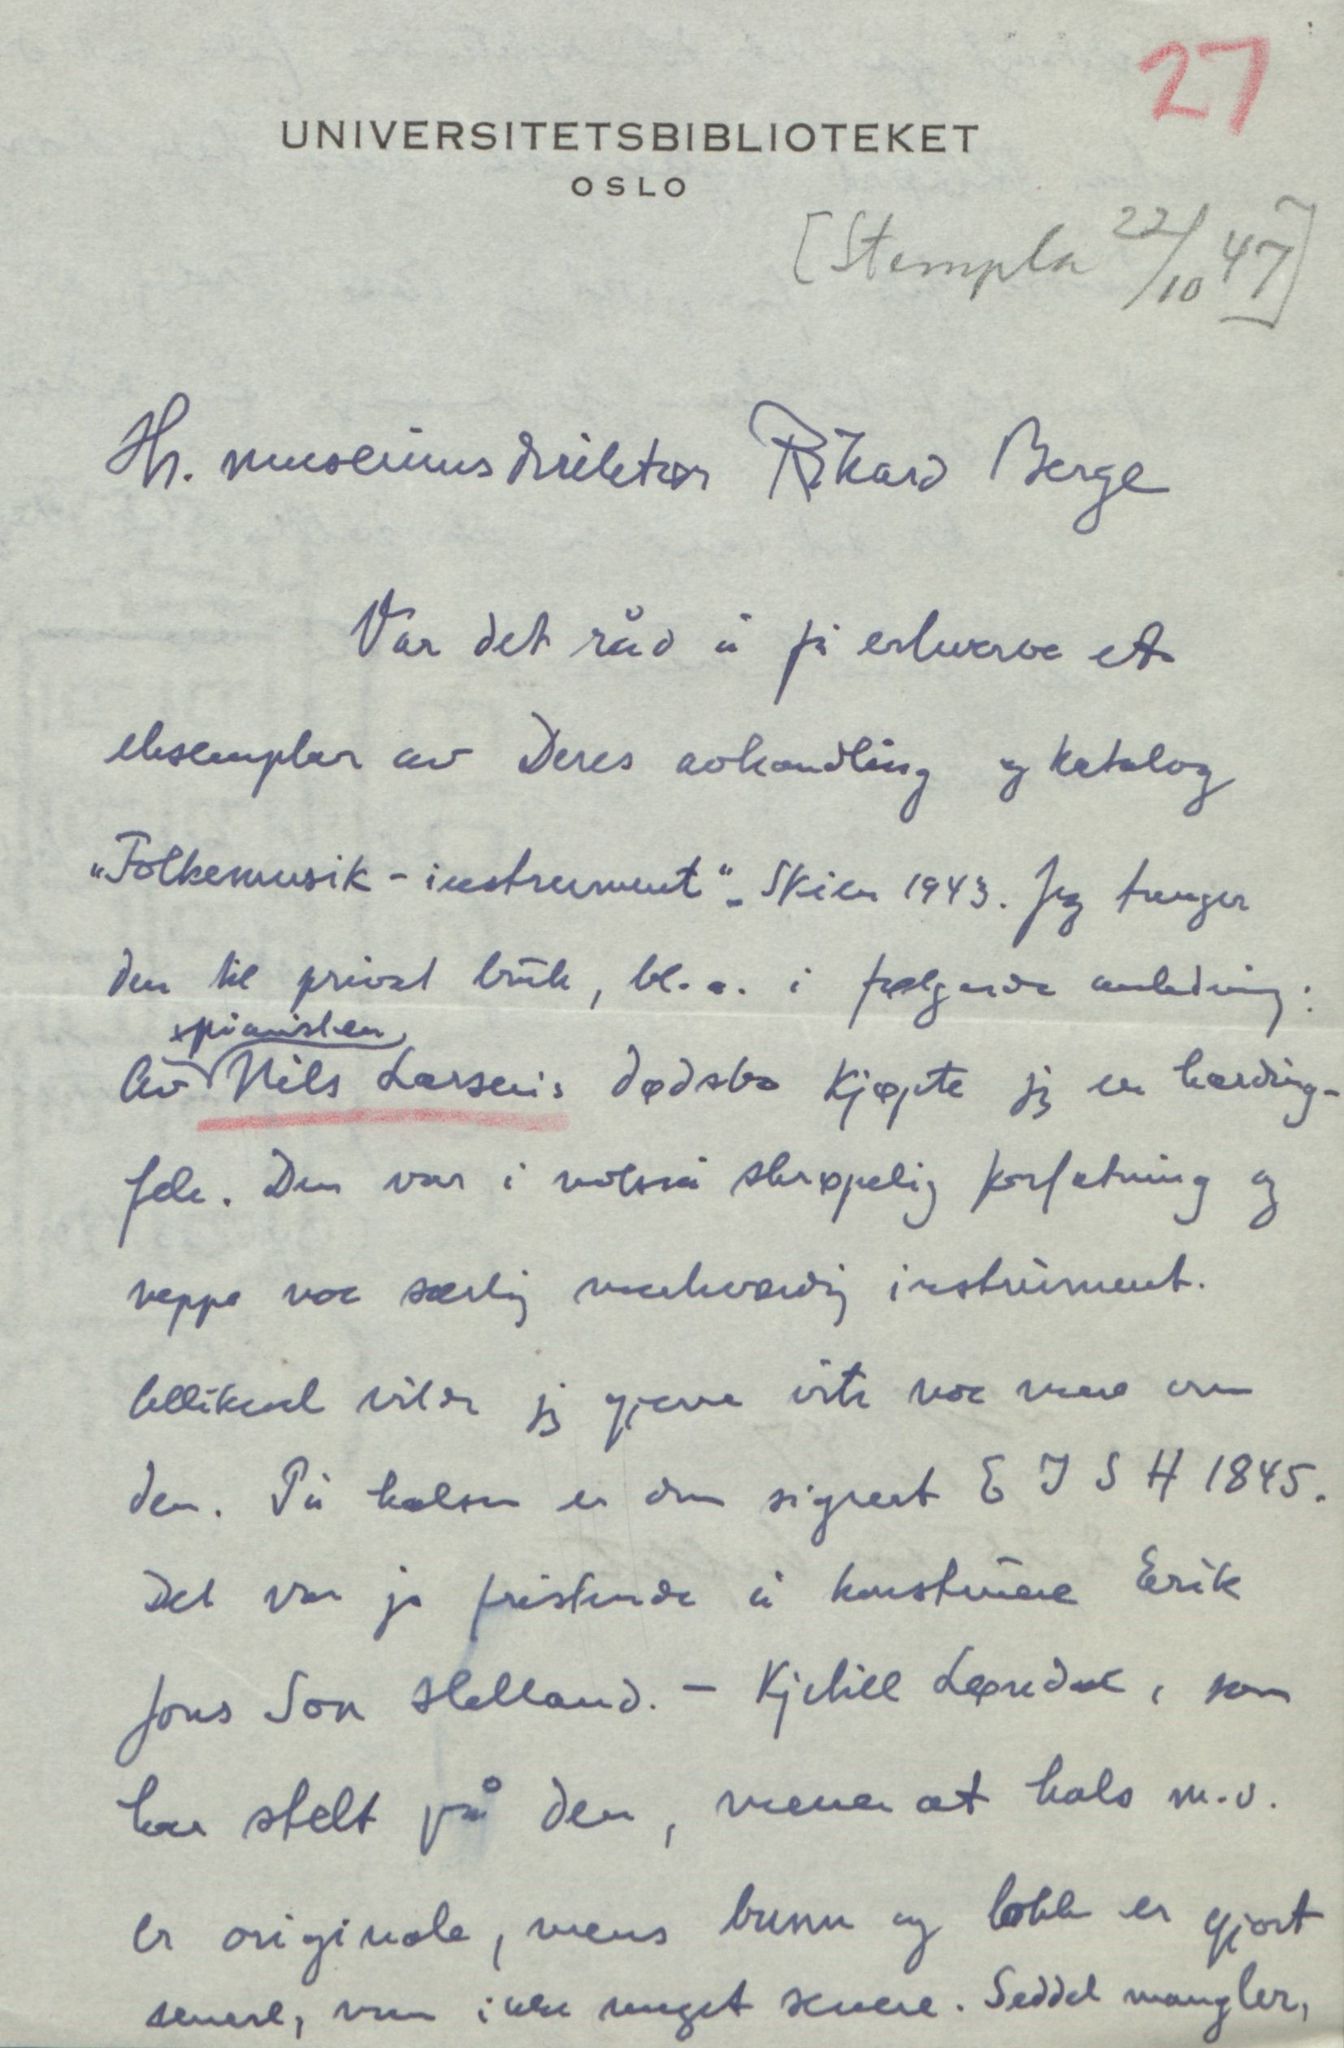 27
UNIVERSITETSBIBLIOTEKET
OSLO
[Stempla 22/10 47]
Hr. museumsdirektør Rikard Berge
Var det råd å få erhverve et
eksemplar av Deres avhandling og katalog
"Folkemusik-instrument" - Skien 1943. Jeg trenger
den til privat bruk, bl.a. i følgende anledning:
pianisten
Av Nils Larsens dødsbo kjøpte jeg en harding-
fele. Den var i nokså skrøpelig forfatning og
neppe noe særlig merkverdig instrument.
Allikevel vilde jeg gjerne vite noe mere om
den. På halsen er den signert E J S H 1845.
Det var jo fristende å konstruere Erik
Jons Son Helland. - Kjetill Løndal, som
har stelt på den, mener at hals m.v.
er originale, mens bunn og lokk er gjort
senere, men ikke meget senere. Seddel mangler,